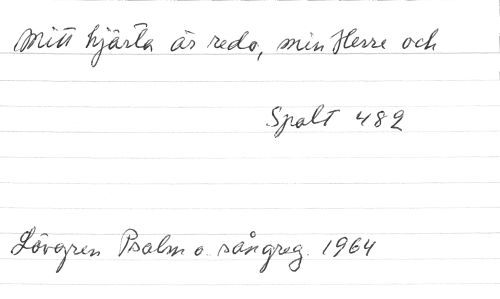 Mitt hjärta är redo, min Herre och
Spalt 482
Lövgren Psalm o. sångreg. 1964